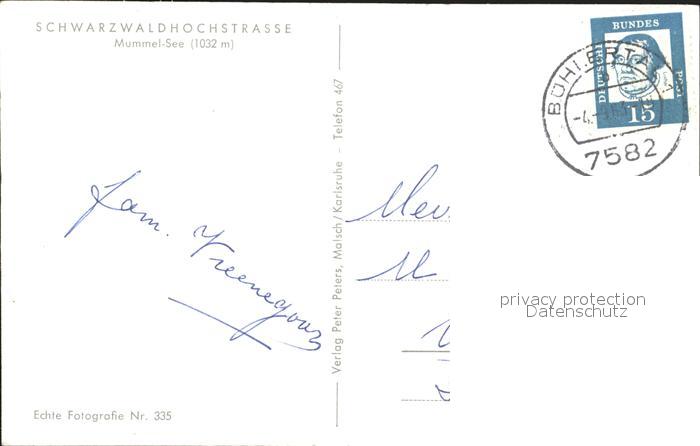 SCHWARZWALDHOCHSTRASSE
Mummel-See (1032 m)
Echte Fotografie Nr. 335
Verlag Peter Peters, Malsch/Karlsruhe - Telefon 467
fam.
DEUTSCHE
BUNDES
POST
15
BÜHLERTAL
7582
privacy protection
Datenschutz